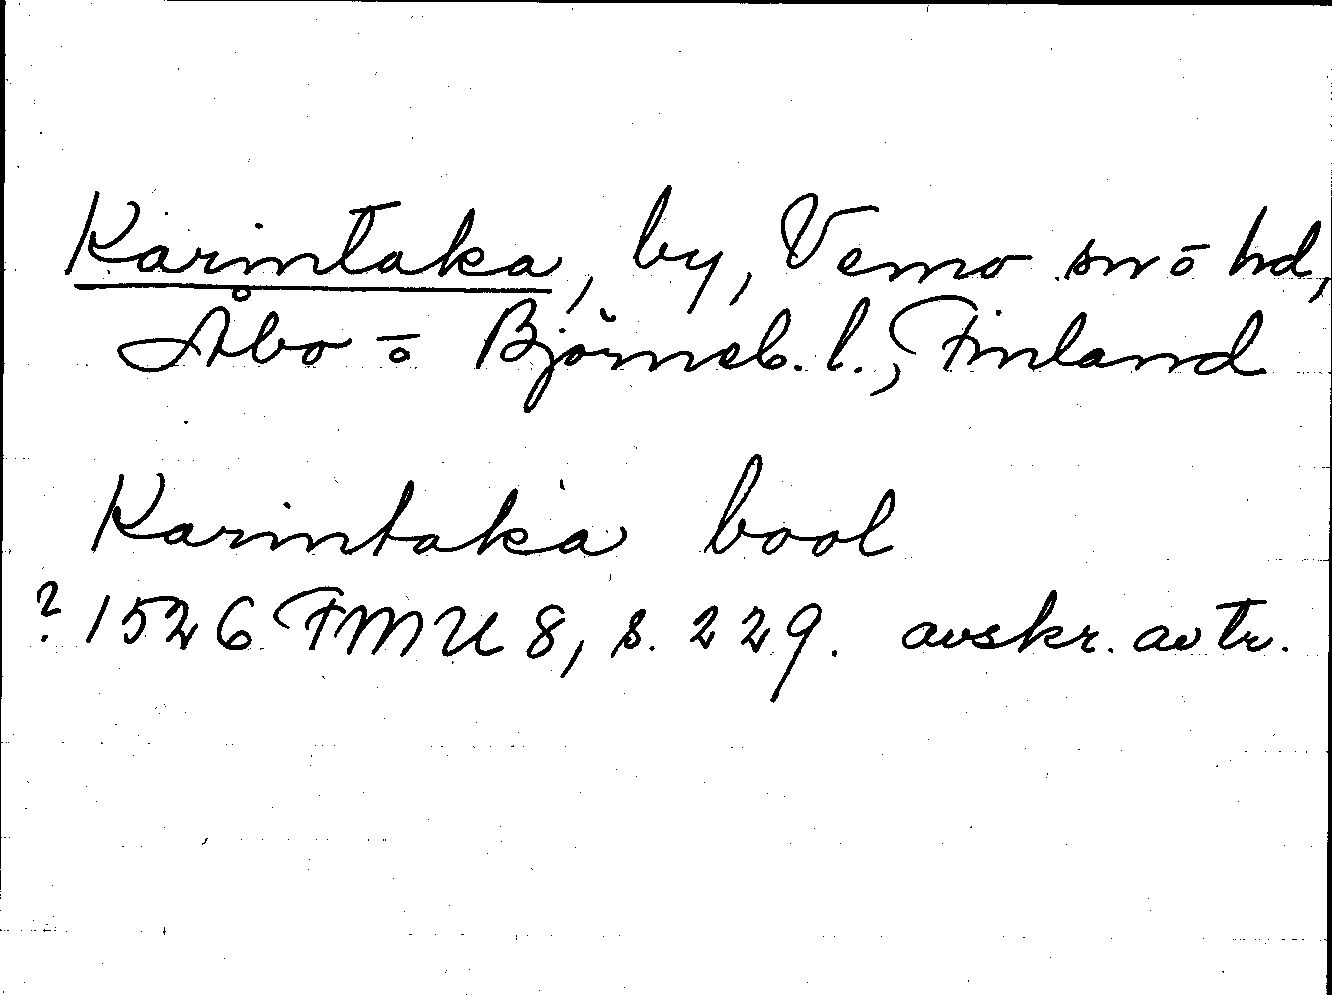 Karintaka, by, Vemo sn o hd,
Åbo o Björneb. l., Finland
Karintaka bool
? 1526 FMU 8, s. 229. avskr. av tr.